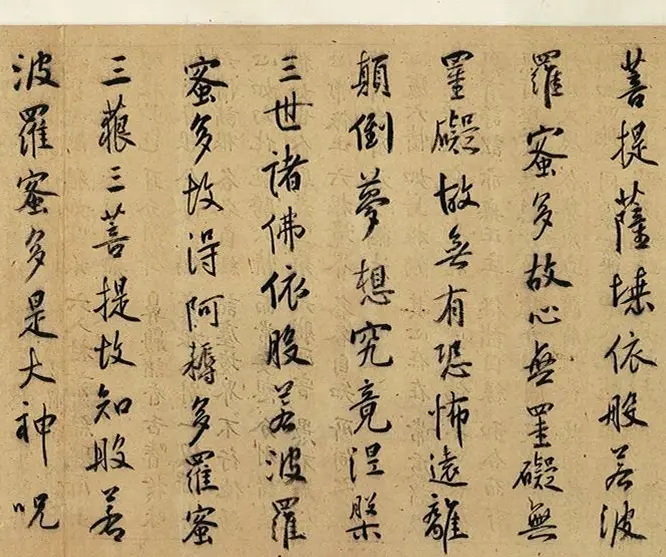 菩提薩埵依般若波
羅蜜多故心無罣礙無
罣礙故無有恐怖遠離
顛倒夢想究竟涅槃
三世諸佛依般若波羅
蜜多故得阿耨多羅蜜
三藐三菩提故知般若
波羅蜜多是大神呪